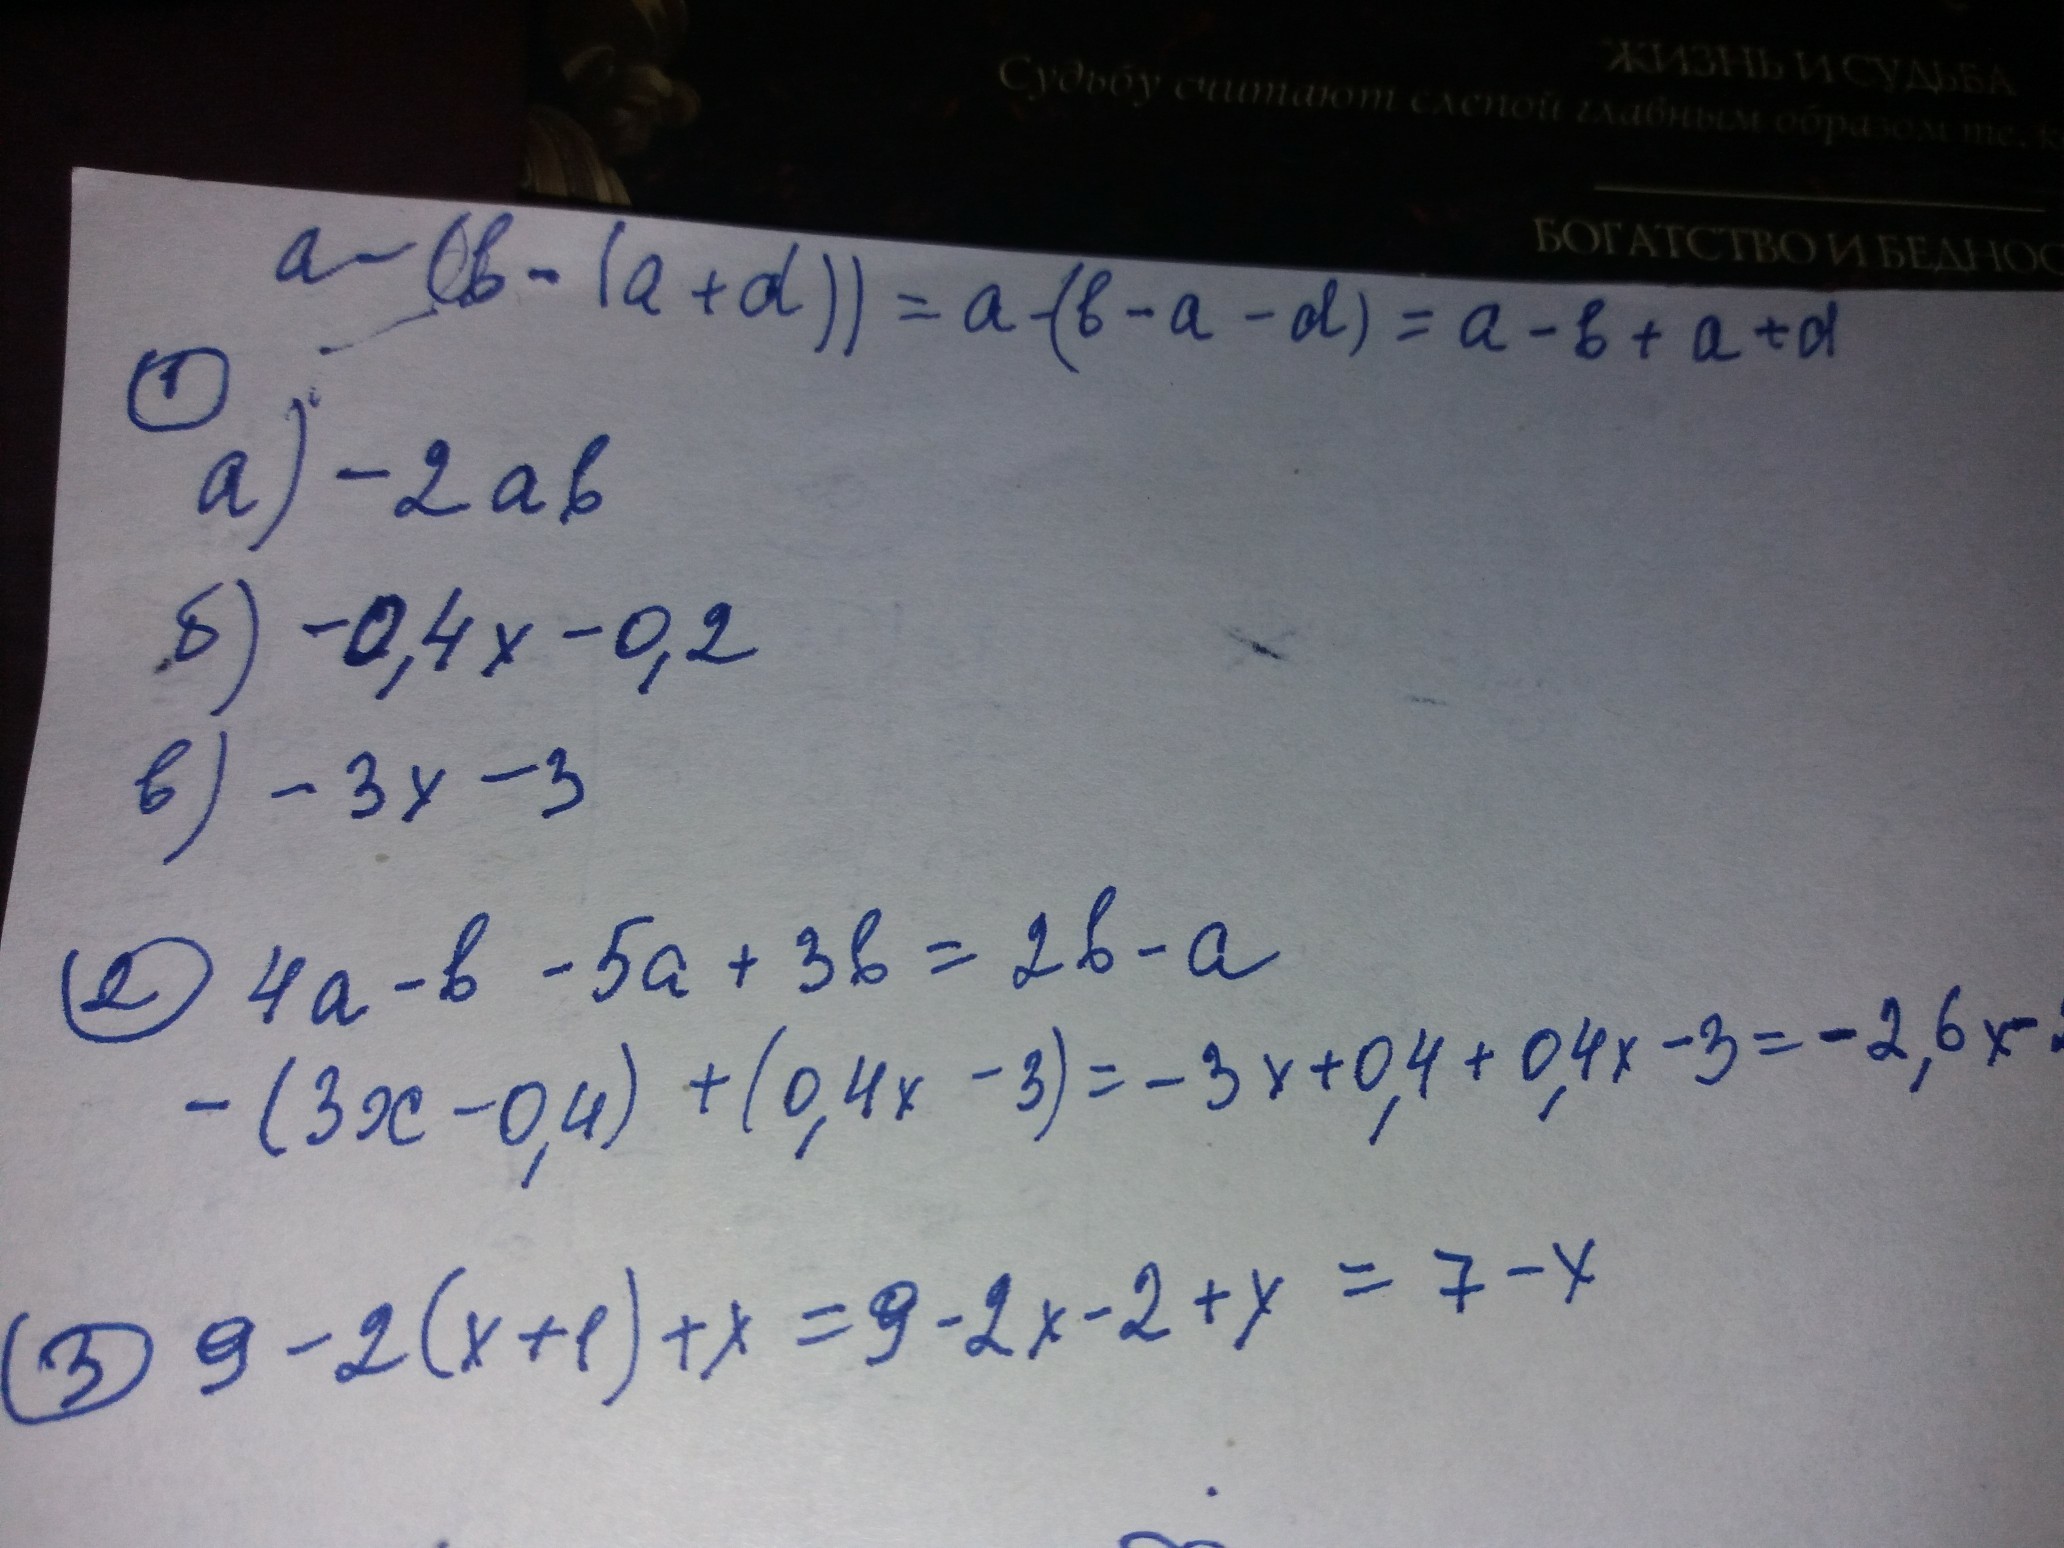 ЖИЗНЬ И СУДЬБА
Судьбу считают слепой главным образом те,
БОГАТСТВО И БЕДНОС
a - (b - (a + d)) = a - (b - a - d) = a - b + a + d
1
а) - 2ab
б) -0,4x - 0,2
в) - 3x - 3
2 4a - b - 5a + 3b = 2b - a
- (3x - 0,4) + (0,4x - 3) = - 3x + 0,4 + 0,4x - 3 = - 2,6x -
3 9 - 2(x + 1) + x = 9 - 2x - 2 + x = 7 - x